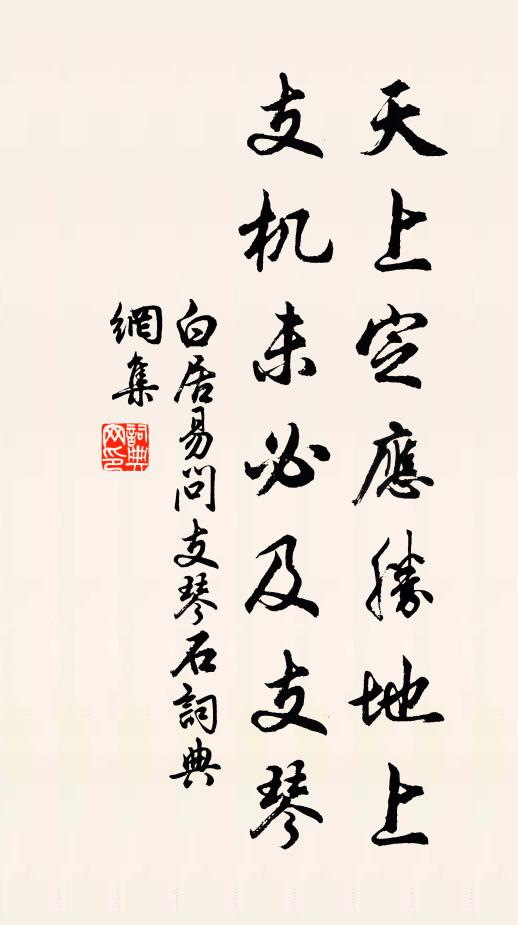 天上定應勝地上
支机未必及支琴
白居易問支琴石詞典
網集
詞典
网印